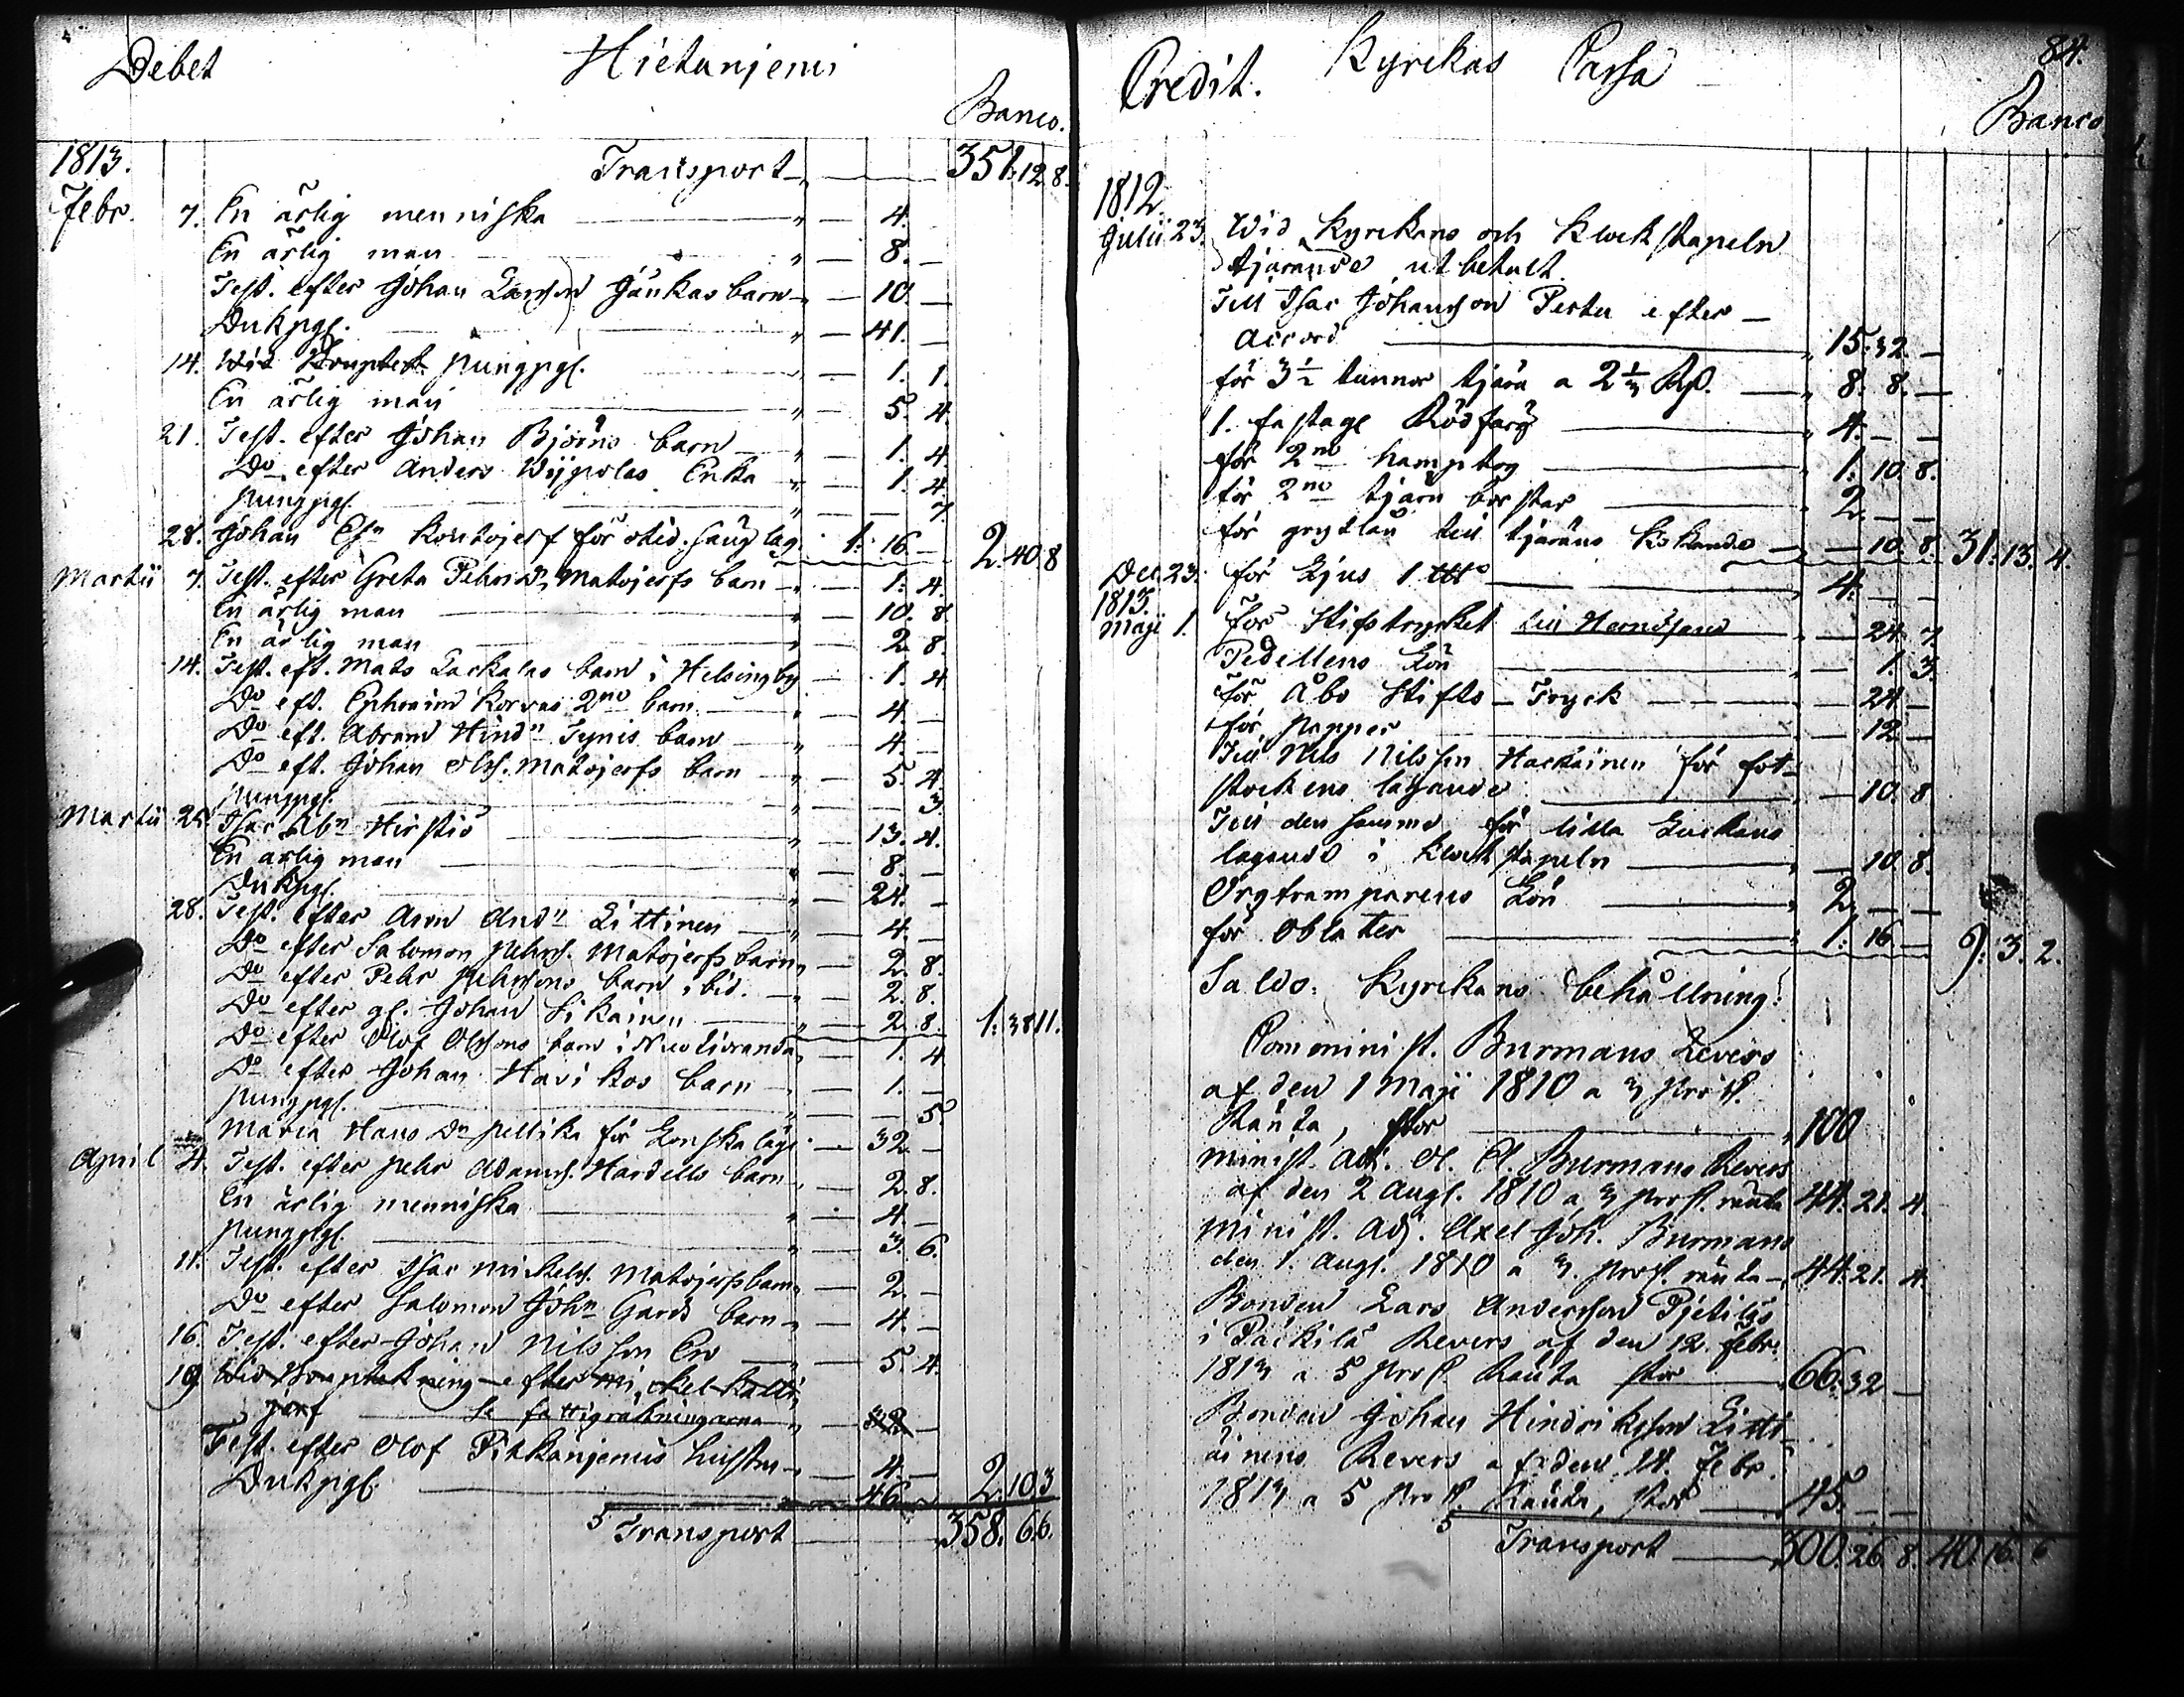 Debet Hietanjemi
Banco.
1813. Transport 351. 12. 8.
Febr. 7. En ärlig menniska 4.
En ärlig man 8. _
Test. efter Johan Jaukas barn 10. _
Dukpgr. 41. _
14. pungpgr. 1. 1.
En ärlig man 5. 4.
21. Test. efter Johan Björns barn 1. 4.
Do efter Anders Wijpolas Enka 1. 4.
pungpgr. 7.
28. Johan för 1: 16 _ 2. 40. 8
Martii 7. Test. efter Greta Matojerfs barn 1. 4.
En ärlig man 10. 8.
En ärlig man 2. 8.
14. Test. eft. Mats Lackalas barn i Helsingby 1. 4.
Do eft. Ephraim Korvas 2ne barn 4. _
Do eft. Abram Hindn Tynis barn 4. _
Do eft. Johan Olss. Matojerfs barn 5. 4.
pungpgr. 3.
Martii 25. Isac Hirstiö 13. 4.
En ärlig man 8. _
Dukpgr. 24. _
28. Test. efter Aron Andn Littinen 4. _
Do efter Salomon Pehrs. Matojerfs barn 2. 8.
Do efter Pehr Pehrsons barn ibid. 2. 8.
Do efter gl. Johan Sikainen 2. 8. 1: 38 11.
Do efter Olof Olssons barn i Niwoliranda 1. 4.
Do efter Johan Havikos barn 1. _
pungpgr. 5.
Maria Hans Dr pellika för 32. _
April 4. Test. efter Pehr Adams. Hardells barn 2. 8.
En ärlig menniska 4. _
pungpgr. 3. 6.
11. Test. efter Isac Mickels. Matojerfs barn 2. _
Do efter Salomon John Gards barn 4. _
16. Test. efter Johan Nilsson Ero 5. 4.
19. Wid efter Mickel
järf se fattigräkningarna 32 _
Test. efter Olof Pirkanjemis hustru 4. _
Dukpgr. 46. _ 2. 10. 3
Transport 358. 6. 6.
Credit. Kyrckas Cassa 84.
Banco
1812.
Julii 23. Wid Kyrckans och Klockstapeln
tjärande utbetalt.
Till Isac Johansson Pertu efter
accord 15. 32. _
för 3 1/2 tunnor tjära a 2 1/3 Rd. 8. 8. _
1. fastage Rödfärg 4. _ _
för 2ne hamptog 1. 10. 8.
för 2ne tjäru borstar 2. _ _
för till tjärans kokande 10. 8. 31. 13. 4.
Dec. 23. för Ljus 1 4. _ _
1813.
Maji 1. för Stiftstrycket till Hernösand 24. 7.
Pedellens Lön 1. 3.
för Åbo Stifts-Tryck 24. _
för papper 12. _
Till Nils Nilsson Hackainen för fot-
stockens lagande 10. 8
Till den samma för lilla Luckans
lagande i klockstapeln 10. 8.
Orgtramparens Lön 2. _ _
för Oblater 1. 16 _ 9. 3. 2.
Saldo: Kyrckans behållning:
Comminist. Burmans Revers
af den 1 Maji 1810 a 3 pro Ct.
Ränta, stor 100
minist. adj. O. O. Burmans Revers
af den 2 Aug. 1810 a 3 pro Ct. ränta 44. 21. 4.
minist. adj. Axel Joh. Burmans
den 1. Aug. 1810 a 3. pro Ct. ränta 44. 21. 4.
Bonden Lars Andersson Pjetilös
i Päckilä Revers af den 12. Febr.
1813 a 5 pro Ct Ränta stor 66. 32 _
Bonden Johan Hindriksson Litti-
äinens Revers af den 14. Febr.
1813 a 5 pro Ct. Ränta, stor 45. _ _
Transport 300. 26. 8. 40. 16. 6